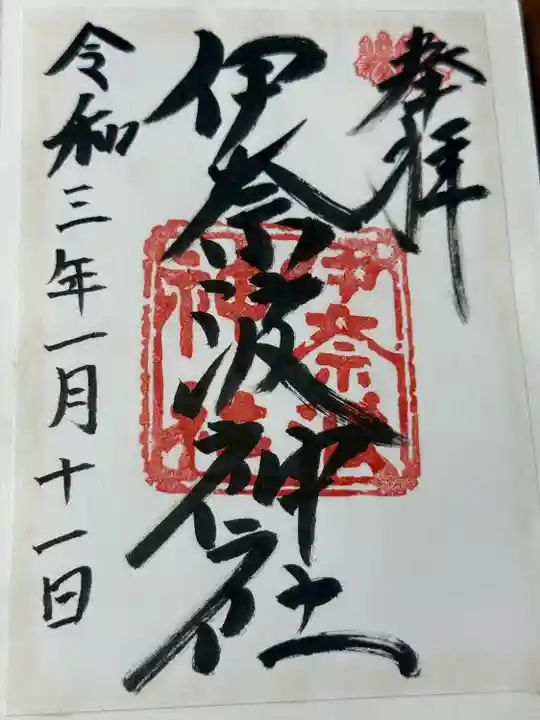 奉拝
伊奈波神社
伊奈波
神社
令和三年一月十一日